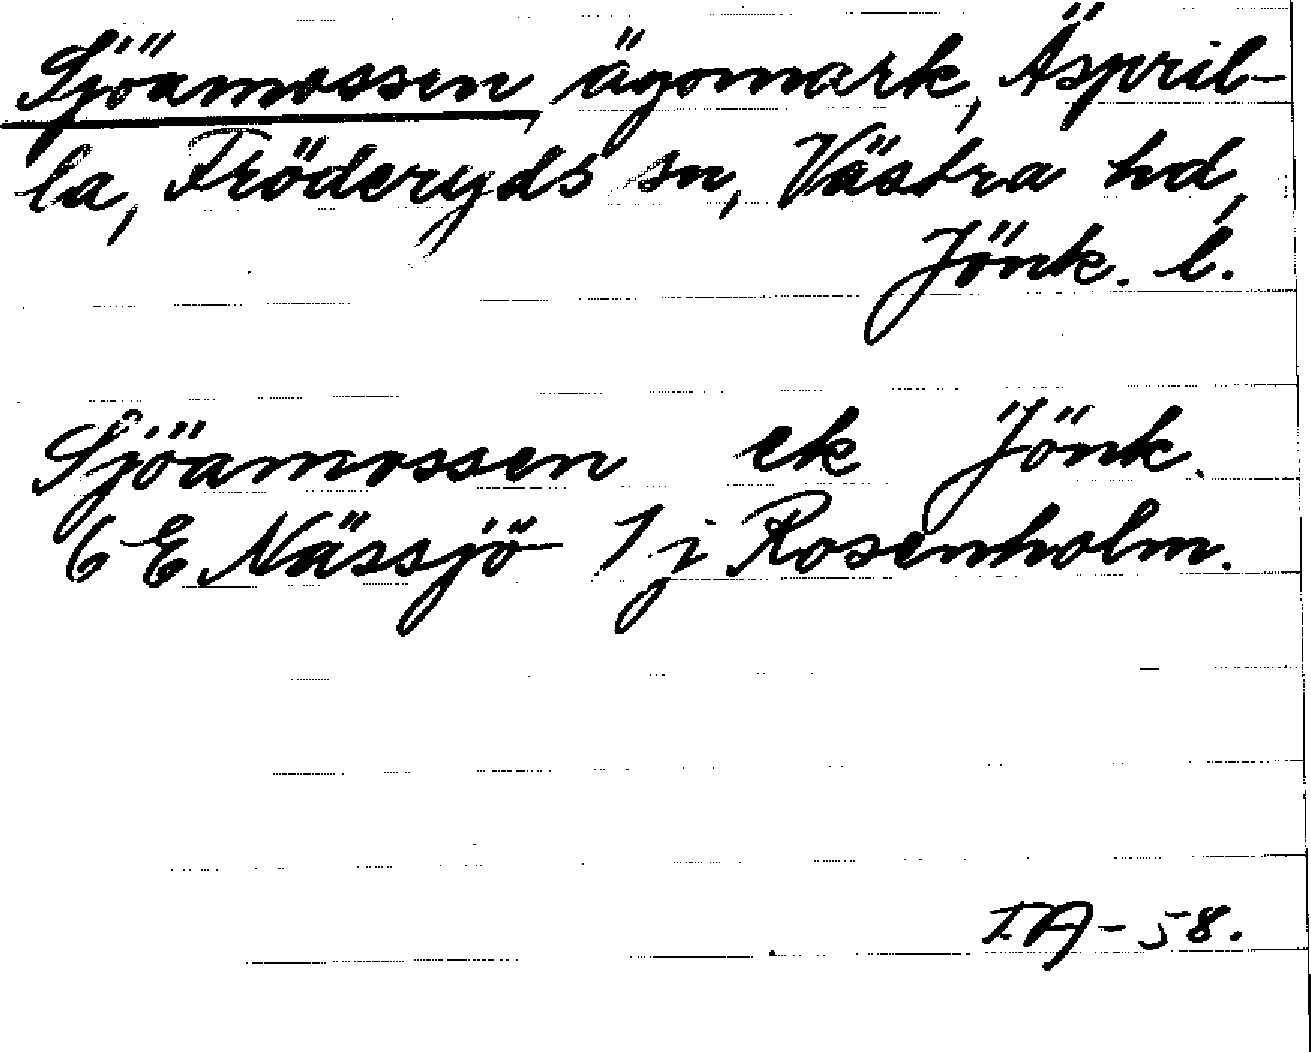 Sjöamossen, ägomark, Äspril-
la, Fröderyds sn, Västra hd,
Jönk. l.
Sjöamossen ek Jönk.
6 E Nässjö 1 j Rosenholm.
I.A-58.